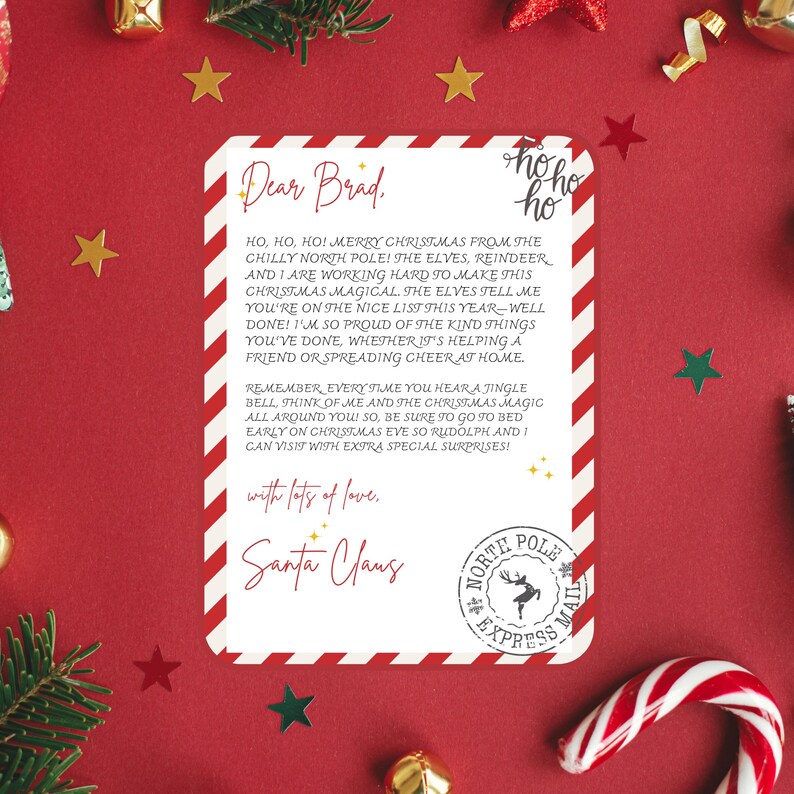 Dear Brad,
ho ho
ho
HO, HO, HO! MERRY CHRISTMAS FROM THE
CHILLY NORTH POLE! THE ELVES, REINDEER
AND I ARE WORKING HARD TO MAKE THIS
CHRISTMAS MAGICAL. THE ELVES TELL ME
YOU'RE ON THE NICE LIST THIS YEAR—WELL
DONE! I'M SO PROUD OF THE KIND THINGS
YOU'VE DONE, WHETHER IT'S HELPING A
FRIEND OR SPREADING CHEER AT HOME.
REMEMBER, EVERY TIME YOU HEAR A JINGLE
BELL, THINK OF ME AND THE CHRISTMAS MAGIC
ALL AROUND YOU! SO, BE SURE TO GO TO BED
EARLY ON CHRISTMAS EVE SO RUDOLPH AND I
CAN VISIT WITH EXTRA SPECIAL SURPRISES!
with lots of love,
Santa Claus
NORTH POLE
EXPRESS MAIL